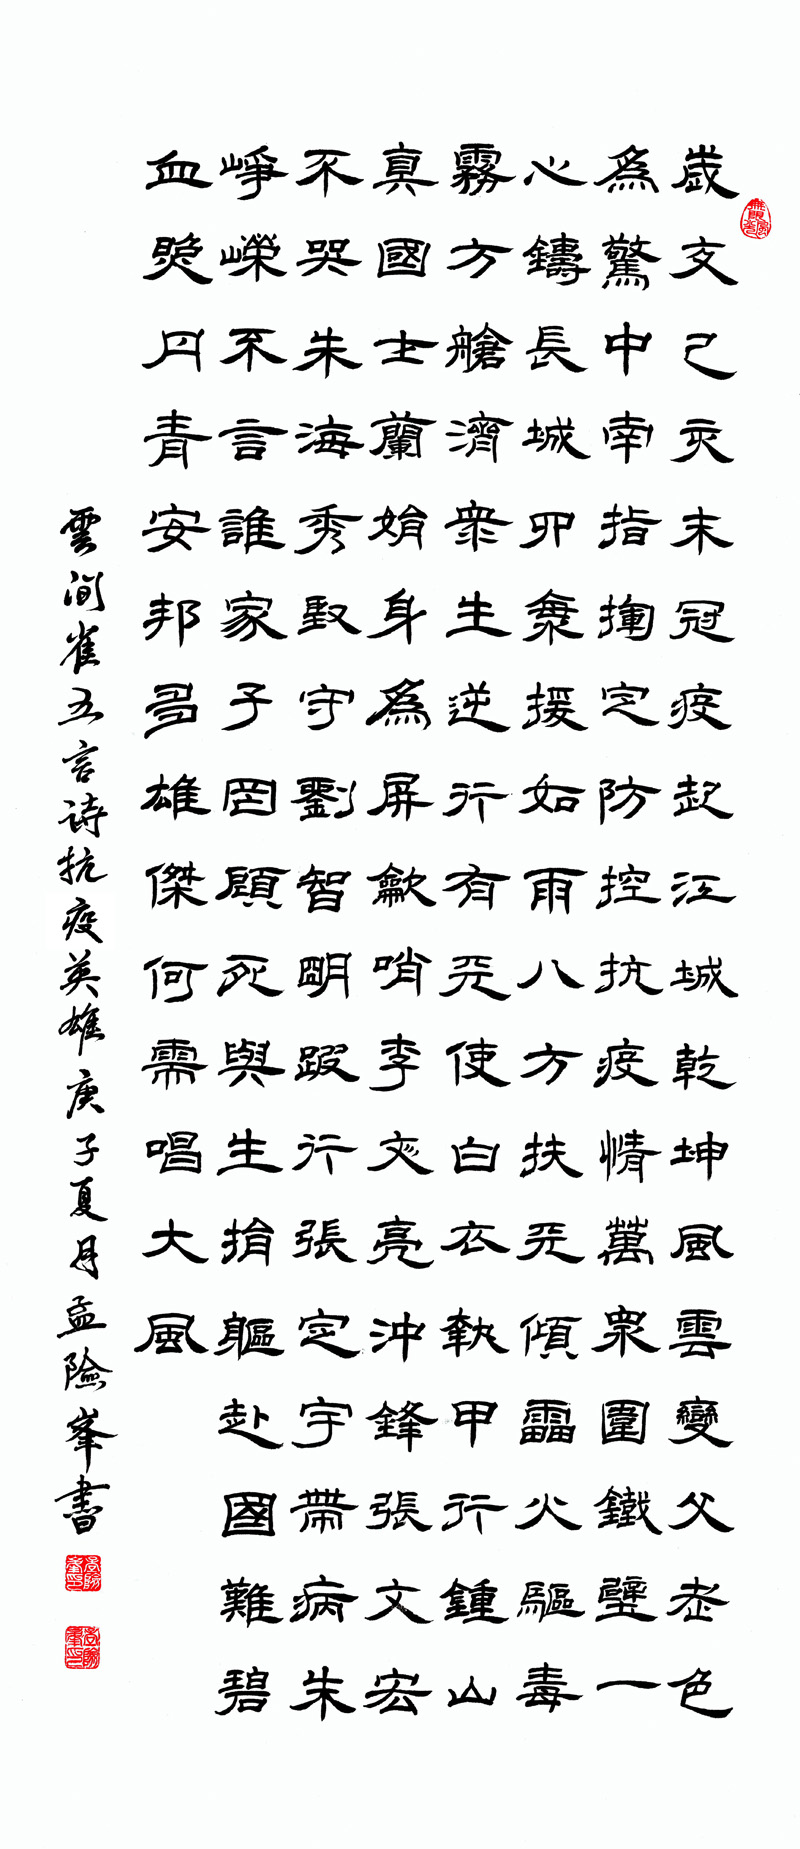 歲交己亥末冠疫起江城乾坤風雲變父老色
為驚中南指揮定防控抗疫情萬眾圍鐵壁一
心鑄長城四象援如雨八方扶天傾雷火驅毒
霧方艙濟眾生逆行有天使白衣執甲行鍾山
真國士蘭娟身為屏歃哨李文亮沖鋒張文宏
不哭朱海秀堅守劉智明跛行張定宇帶病朱
崢嶸不言誰家子罔顧死與生捐軀赴國難碧
血照丹青安邦多雄傑何需唱大風
雲澗雀五言詩抗疫英雄庚子夏月孟險峯書